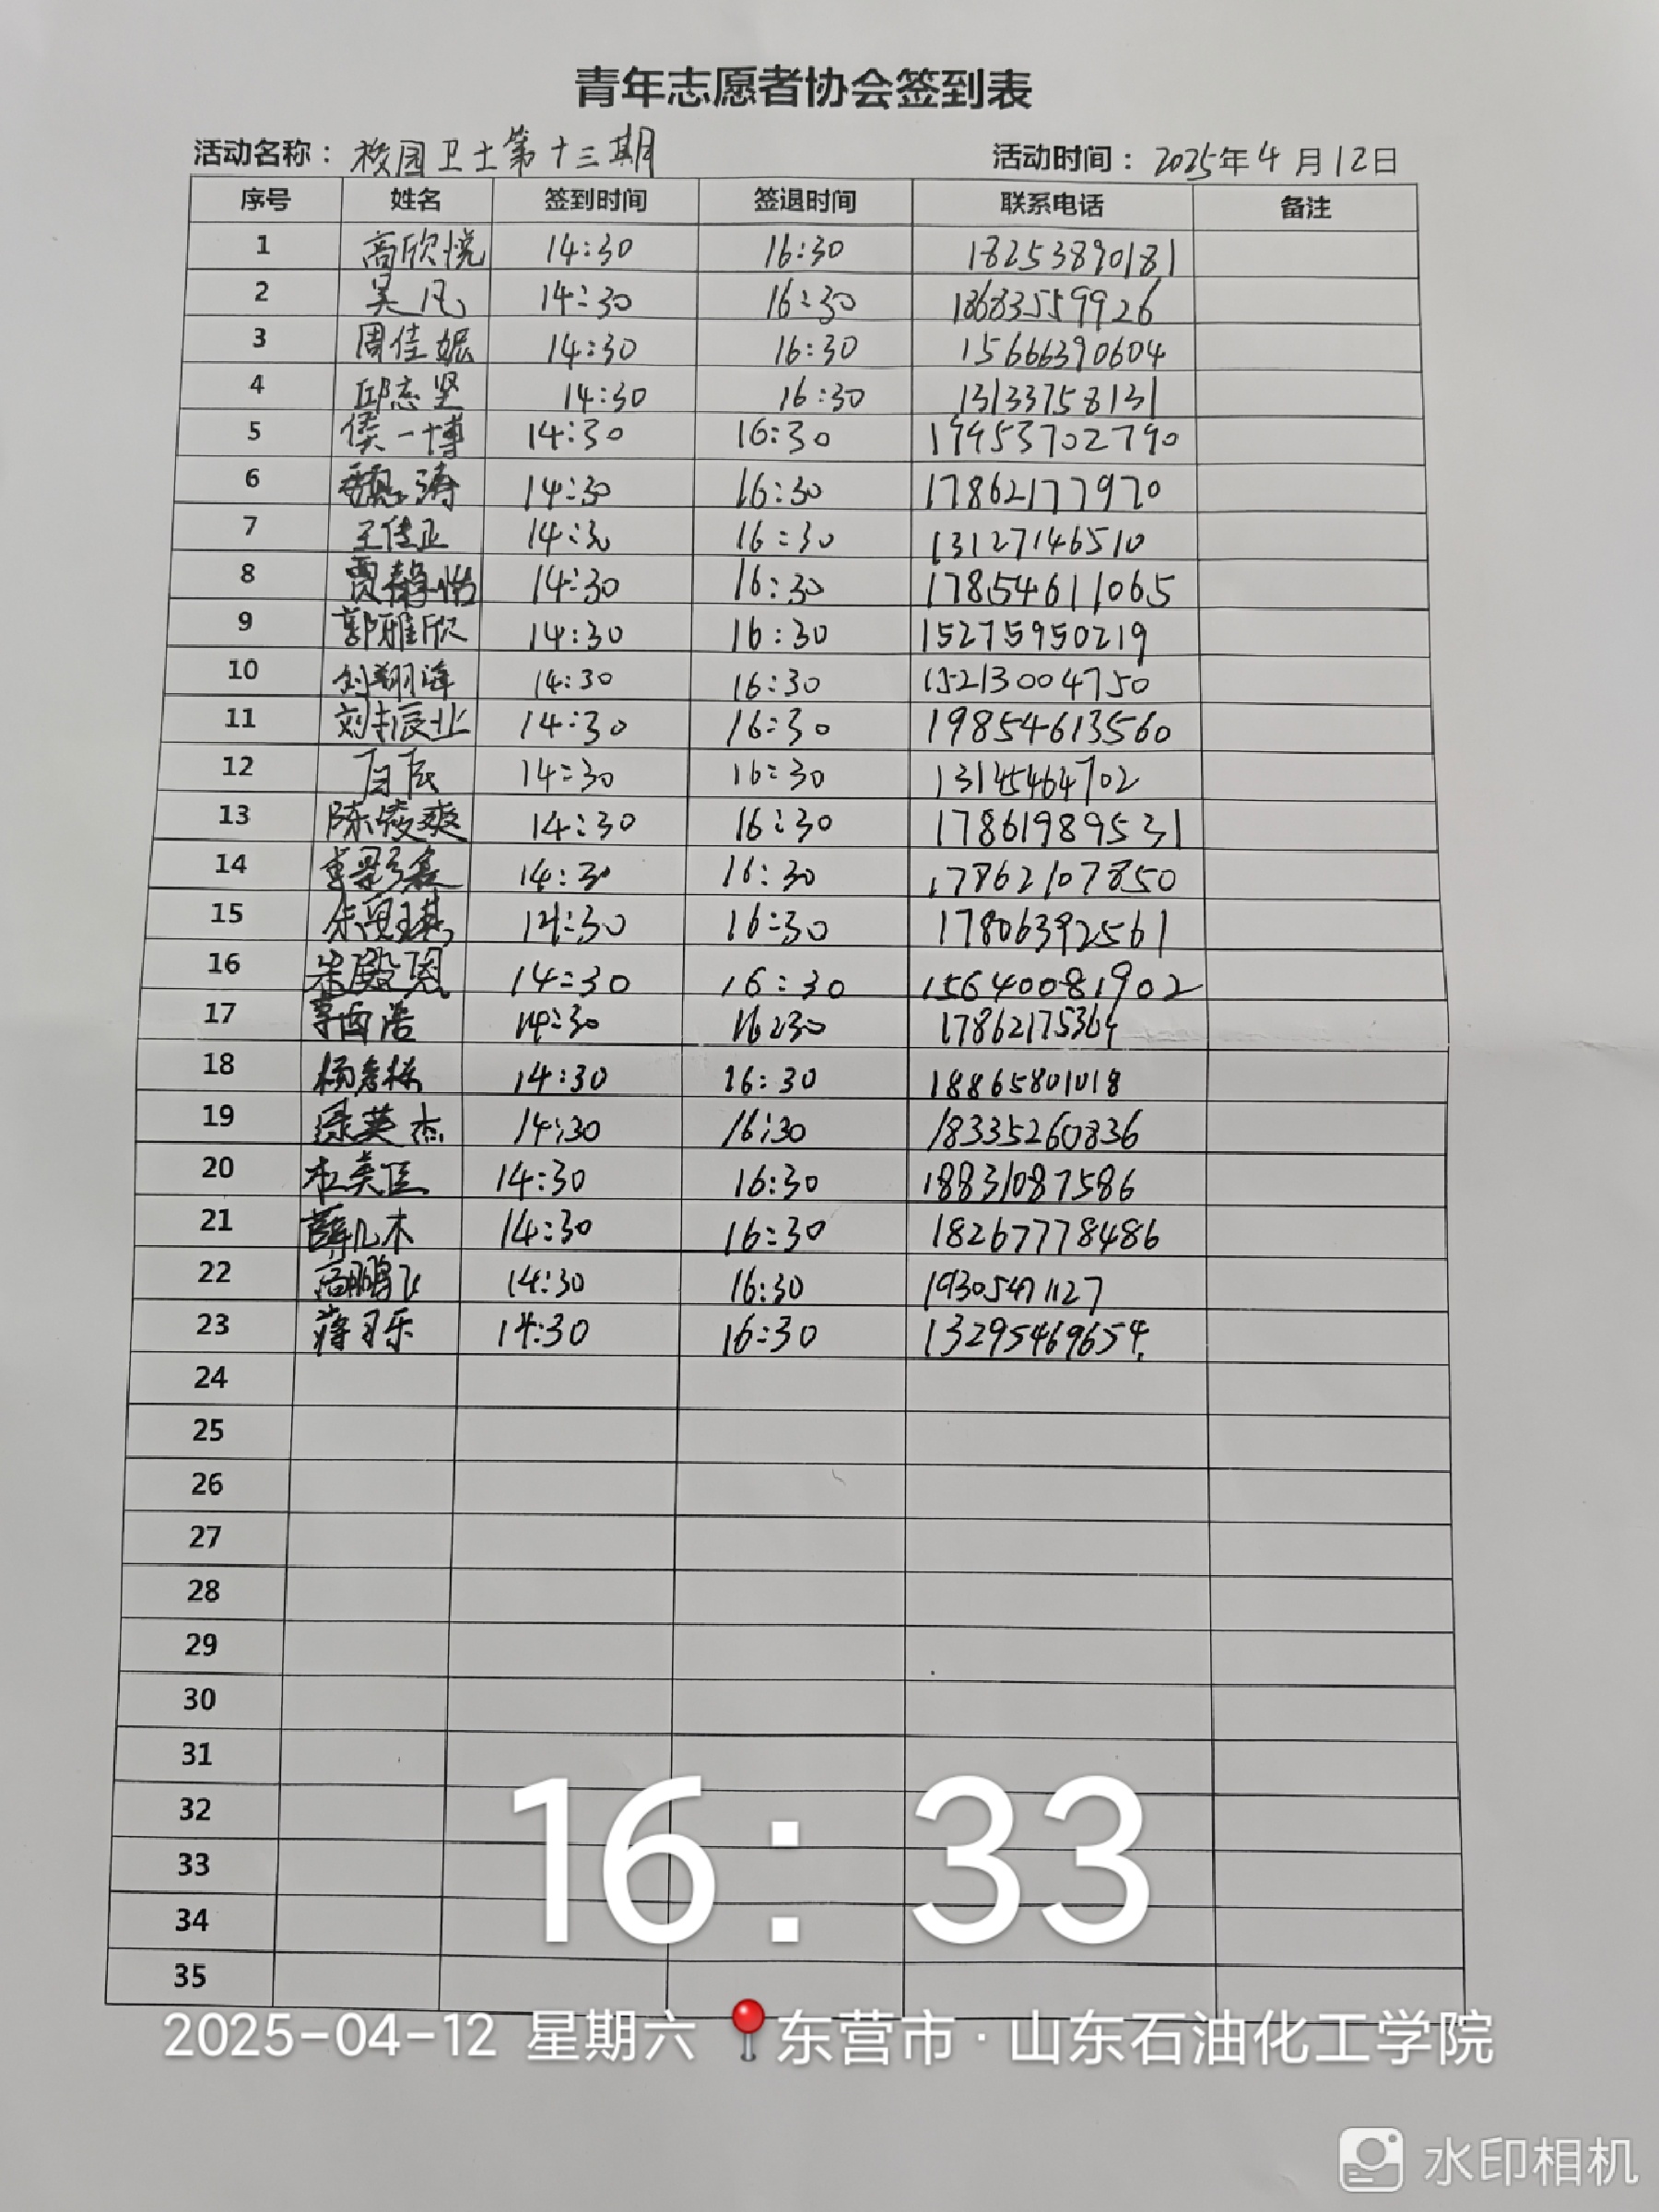 青年志愿者协会签到表
活动名称：校园卫士第十三期 活动时间：2025年4月12日
序号 姓名 签到时间 签退时间 联系电话 备注
1 高欣悦 14:30 16:30 18253890181
2 吴凡 14:30 16:30 18683559926
3 周佳妮 14:30 16:30 15666390604
4 邱志坚 14:30 16:30 13133758131
5 侯一博 14:30 16:30 19953702790
6 魏涛 14:30 16:30 17862177970
7 王佳正 14:30 16:30 13127146510
8 贾静怡 14:30 16:30 17854611065
9 郭雅欣 14:30 16:30 15275950219
10 刘翔海 14:30 16:30 15213004750
11 刘辰业 14:30 16:30 19854613560
12 14:30 16:30 13145464702
13 陈筱爽 14:30 16:30 17861989531
14 14:30 16:30 17862107850
15 14:30 16:30 17806392561
16 朱殿恩 14:30 16:30 15640081902
17 14:30 16:30
18 14:30 16:30 18865801018
19 14:30 16:30 18335260836
20 杜美佳 14:30 16:30 18831087586
21 薛几木 14:30 16:30 18267778486
22 高鹏飞 14:30 16:30 19305471127
23 蒋子乐 14:30 16:30 13295469654
24
25
26
27
28
29
30
31
32
33
34
35
16:33
2025-04-12 星期六 东营市·山东石油化工学院
水印相机